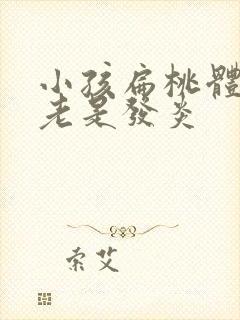 小孩扁桃體
老是發炎
索艾